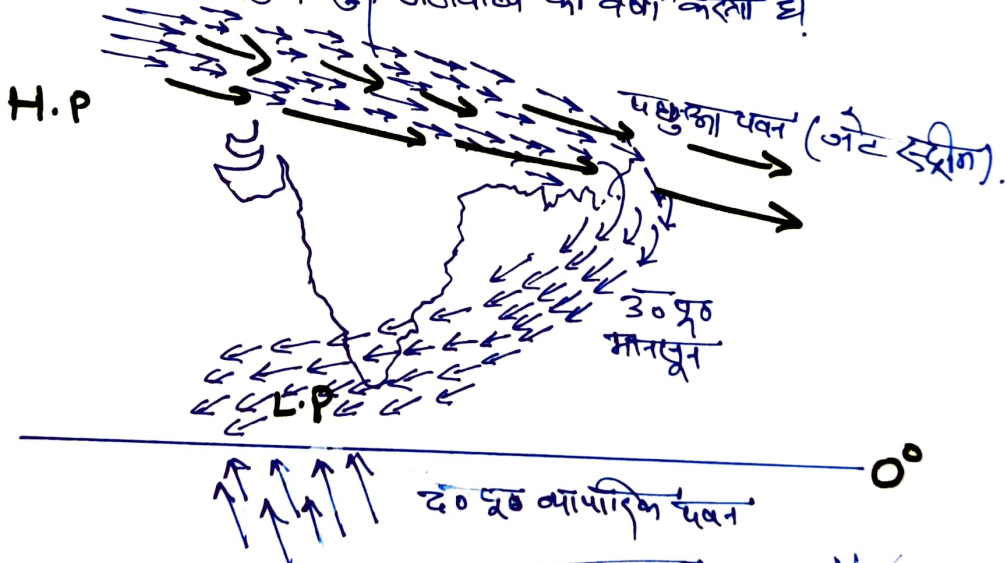 की वर्षा करता है।
H.P
पछुआ पवन (जेट स्ट्रीम).
उ० पू०
मानसून
L.P
0°
द० पू० व्यापारिक पवन